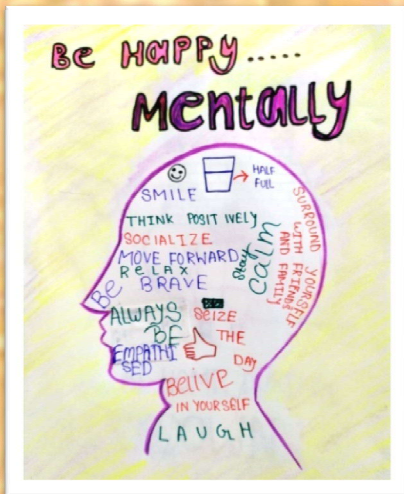 Be Happy.....
Mentally
HALF
FULL
SMILE
THINK POSITIVELY
SOCIALIZE
MOVE FORWARD
RELAX
Be BRAVE
Stay
calm
SURROUND YOURSELF
WITH FRIENDS
AND FAMILY
ALWAYS
BE
EMPATHI
SED
SEIZE
THE
DAY
BeliVE
IN YOURSELF
LAUGH